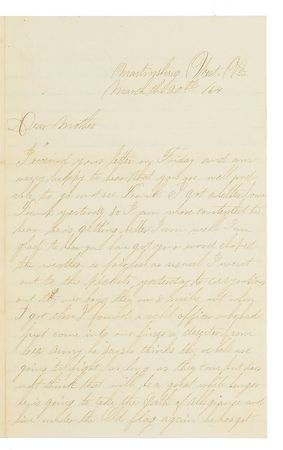 Martinsburg West Va
March the 20th / 64
Dear Mother
I received your letter on Friday and am
very happy to hear that you are well and
able to go and see Frank I got a letter from
Frank yesterday so I am more contented to
hear he is getting better I am well I am
glad to hear you can get your wood choped
the weather is as usual I went
out to the pickets yesterday to carry rations
out they are 3 miles out when
I got there I found a rebel officer whoad
just come into our lines a deserter from
Lees army he says he thinks they rebels are
going to fight as long as they can but does
not think that will be a great while longer
he is going to take the Oath of allegiance and
live under the Old flag again he has got